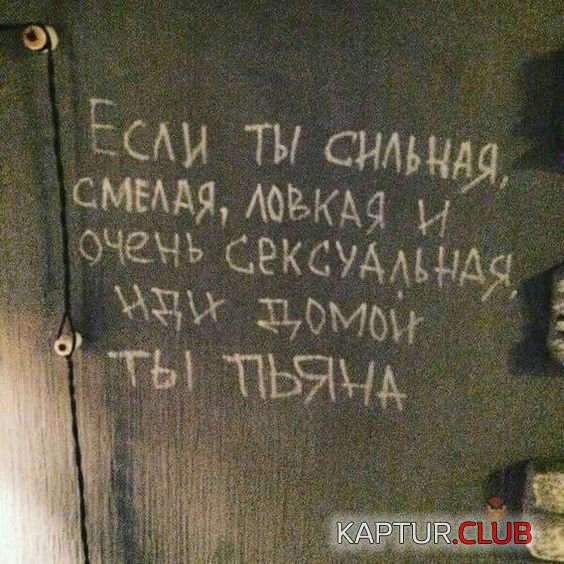 Если ты сильная,
смелая, ловкая и
очень сексуальная,
иди домой
ты пьяна
KAPTUR.CLUB